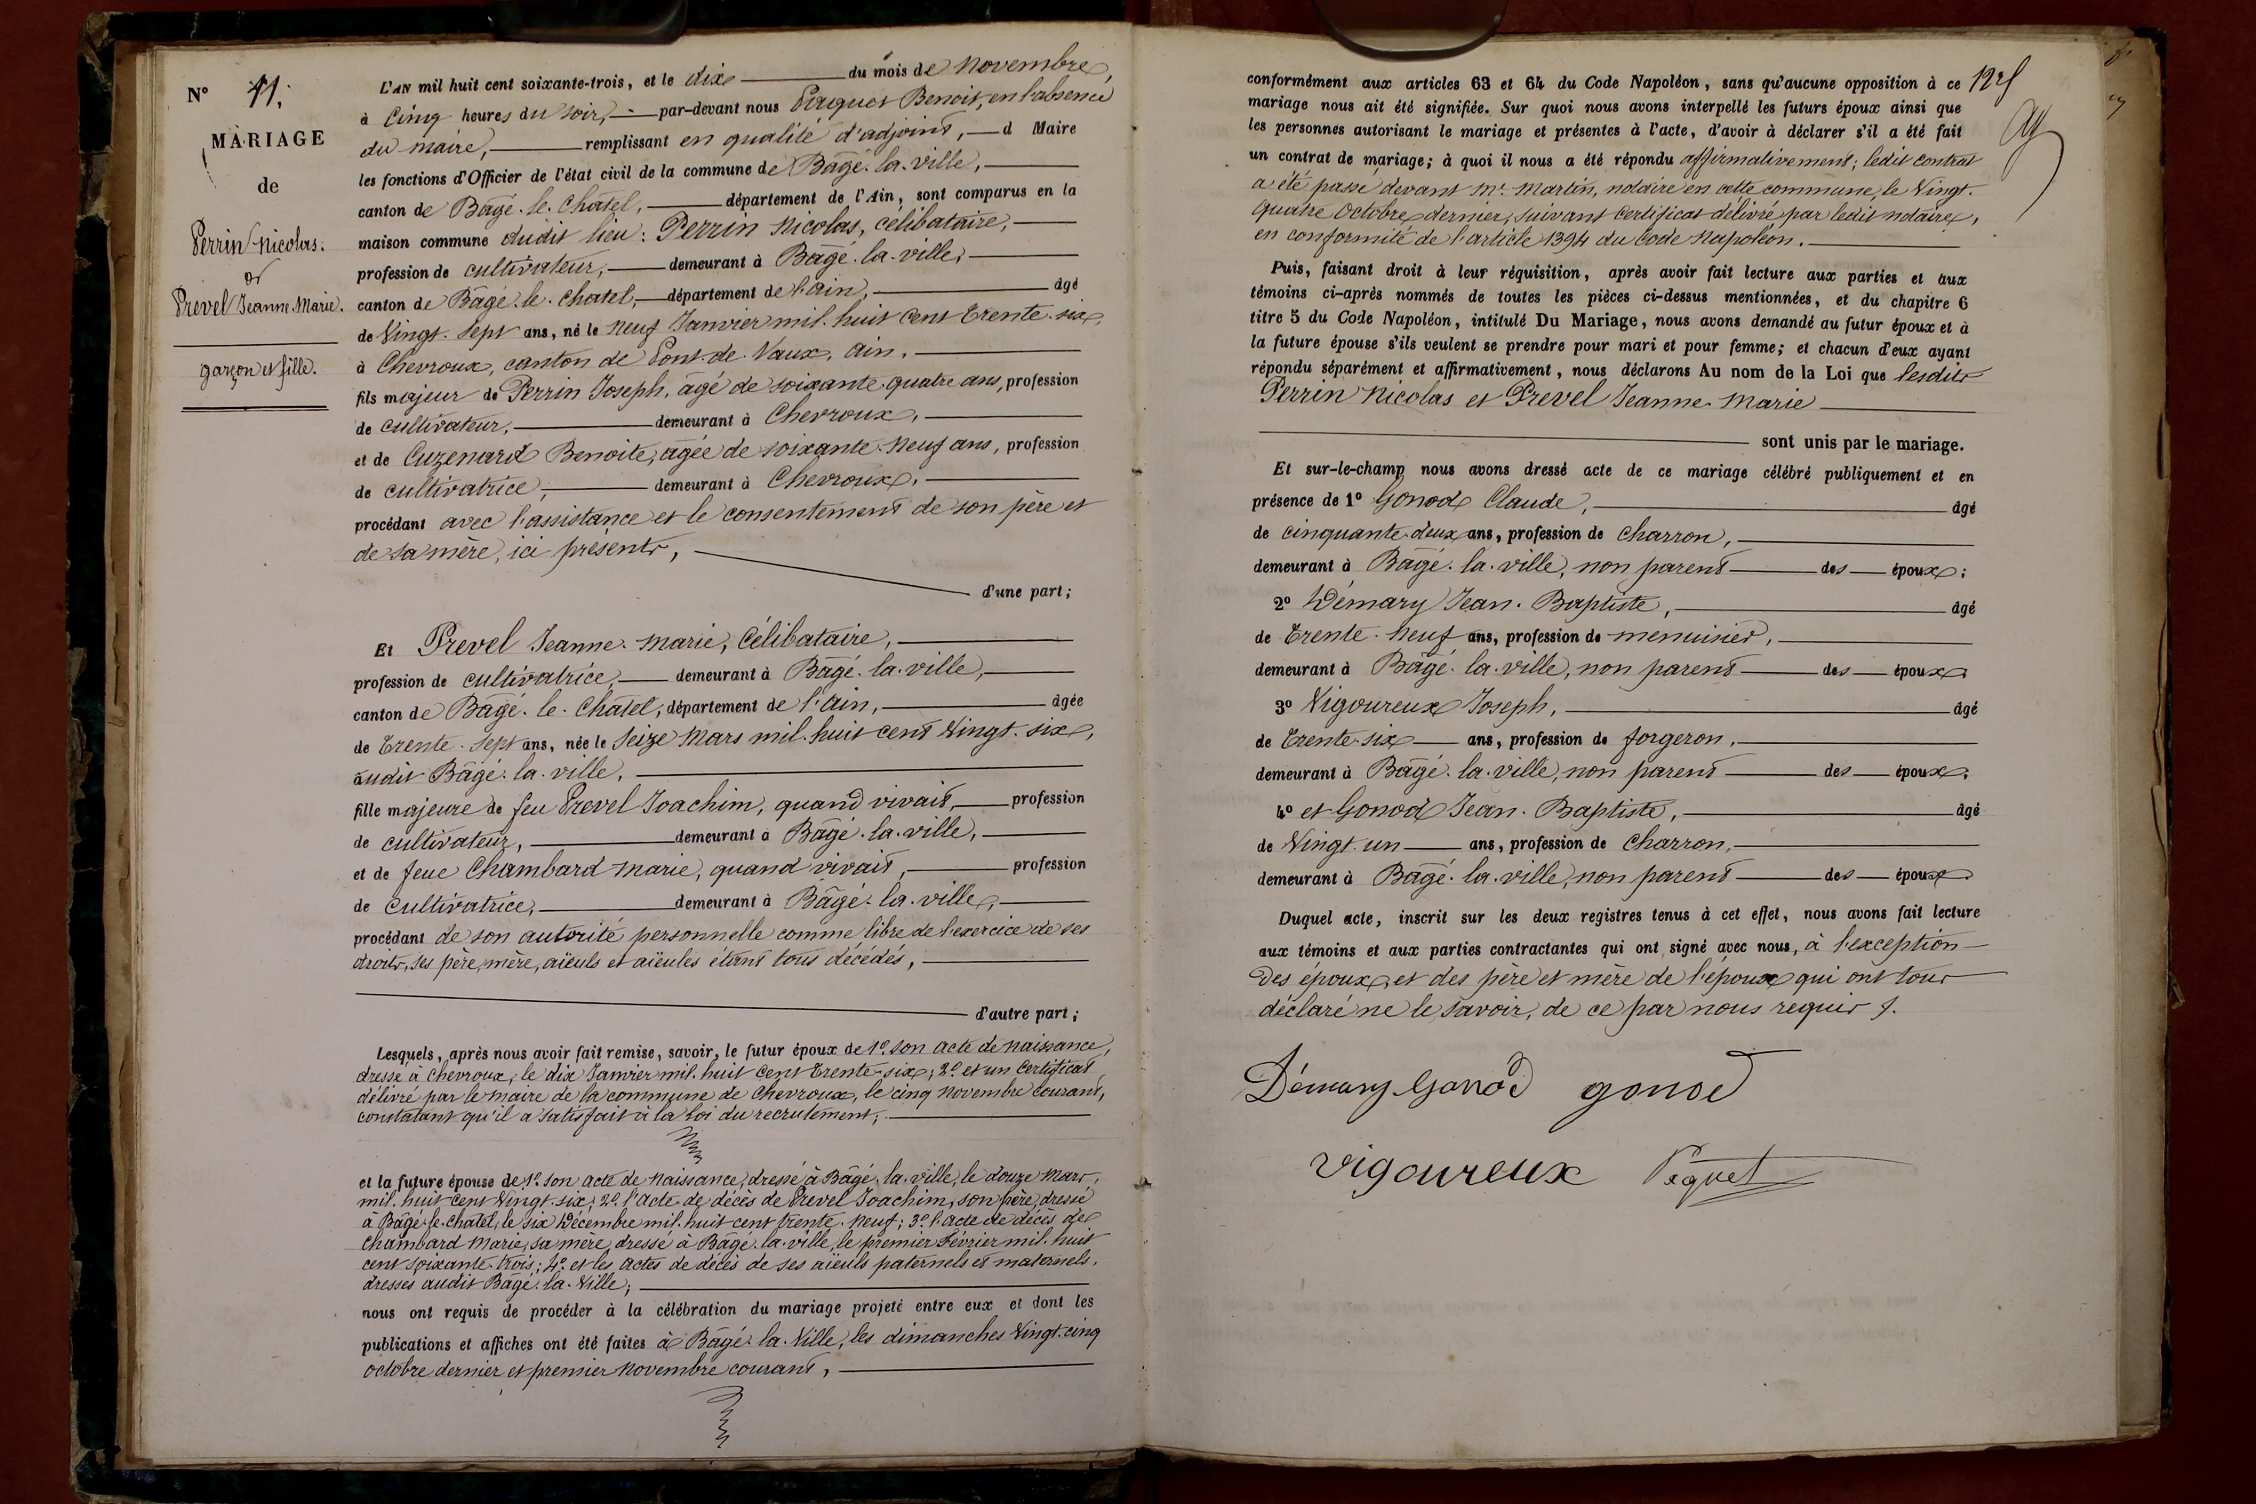 N° 11.
MARIAGE
de
Perrin Nicolas.
et
Prevel Jeanne-Marie.
garçon et fille.
L'AN mil huit cent soixante-trois, et le dix du mois de Novembre,
à Cinq heures du soir, par-devant nous Benoit, en l'absence
du maire, remplissant en qualité d'adjoint, d Maire
les fonctions d'Officier de l'état civil de la commune de Bâgé-la-ville,
canton de Bâgé-le-Châtel, département de l'Ain, sont comparus en la
maison commune dudit lieu: Perrin Nicolas, célibataire,
profession de cultivateur, demeurant à Bâgé-la-ville,
canton de Bâgé-le-Chatel, département de l'ain, âgé
de Vingt-Sept ans, né le Neuf Janvier mil-huit Cent Trente-six,
à Chevroux, canton de Pont-de-Vaux, ain,
fils majeur de Perrin Joseph, âgé de soixante-quatre ans, profession
de cultivateur, demeurant à Chevroux,
et de Cuzenard Benoite, âgée de soixante-Neuf ans, profession
de cultivatrice, demeurant à Chevroux,
procédant avec l'assistance et le consentement de son père et
de sa mère, ici présents,
d'une part;
Et Prevel Jeanne-Marie, Célibataire,
profession de cultivatrice, demeurant à Bâgé-la-ville,
canton de Bâgé-le-Châtel, département de l'ain, âgée
de Trente-Sept ans, née le Seize Mars mil-huit cent Vingt-six,
audit Bâgé-la-ville,
fille majeure de feu Prevel Joachim, quand vivait, profession
de cultivateur, demeurant à Bâgé-la-ville,
et de feue Chambard Marie, quand vivait, profession
de cultivatrice, demeurant à Bâgé-la-ville,
procédant de son autorité personnelle comme libre de l'exercice de ses
droits, ses père, mère, aïeuls et aïeules étant tous décédés,
d'autre part;
Lesquels, après nous avoir fait remise, savoir, le futur époux de 1° son acte de naissance,
dressé à Chevroux, le dix Janvier mil-huit Cent Trente-six; 2° et un Certificat
délivré par le maire de la commune de Chevroux, le cinq Novembre courant,
constatant qu'il a satisfait à la loi du recrutement;
et la future épouse de 1° son acte de Naissance, dressé à Bâgé-la-ville, le douze Mars
mil-huit cent Vingt-six; 2° l'acte de décès de Prevel Joachim, son père, dressé
à Bâgé-le-chatel, le six Décembre mil-huit cent trente-Neuf; 3° l'acte de décès de
Chambard Marie, sa mère, dressé à Bâgé-la-ville, le premier Février mil-huit
cent soixante-trois; 4° et les actes de décès de ses aïeuls paternels et maternels,
dressés audit Bâgé-la-Ville;
nous ont requis de procéder à la célébration du mariage projeté entre eux et dont les
publications et affiches ont été faites à Bâgé-la-Ville, les dimanches Vingt-cinq
octobre dernier et premier Novembre courant,
conformément aux articles 63 et 64 du Code Napoléon, sans qu'aucune opposition à ce
mariage nous ait été signifiée. Sur quoi nous avons interpellé les futurs époux ainsi que
les personnes autorisant le mariage et présentes à l'acte, d'avoir à déclarer s'il a été fait
un contrat de mariage; à quoi il nous a été répondu affirmativement; ledit contrat
a été passé devant Mr. Martin, notaire en cette commune, le Vingt-
quatre Octobre dernier, suivant certificat délivré par ledit notaire,
en conformité de l'article 1394 du Code Napoléon.
Puis, faisant droit à leur réquisition, après avoir fait lecture aux parties et aux
témoins ci-après nommés de toutes les pièces ci-dessus mentionnées, et du chapitre 6
titre 5 du Code Napoléon, intitulé Du Mariage, nous avons demandé au futur époux et à
la future épouse s'ils veulent se prendre pour mari et pour femme; et chacun d'eux ayant
répondu séparément et affirmativement, nous déclarons Au nom de la Loi que lesdits
Perrin Nicolas et Prevel Jeanne-Marie
sont unis par le mariage.
Et sur-le-champ nous avons dressé acte de ce mariage célébré publiquement et en
présence de 1° Gonod Claude, âgé
de cinquante-deux ans, profession de charron,
demeurant à Bâgé-la-ville, non parent des époux;
2° Démary Jean-Baptiste, âgé
de Trente-Neuf ans, profession de menuisier,
demeurant à Bâgé-la-ville, non parent des époux;
3° Vigoureux Joseph, âgé
de Trente-six ans, profession de forgeron,
demeurant à Bâgé-la-ville, non parent des époux;
4° et Gonod Jean-Baptiste, âgé
de Vingt-un ans, profession de charron,
demeurant à Bâgé-la-ville, non parent des époux.
Duquel acte, inscrit sur les deux registres tenus à cet effet, nous avons fait lecture
aux témoins et aux parties contractantes qui ont signé avec nous, à l'exception
Des époux, et des père et mère de l'époux qui ont tous
déclaré ne le savoir, de ce par nous requis.
Démary Gonod gonod
Vigoureux Péquet